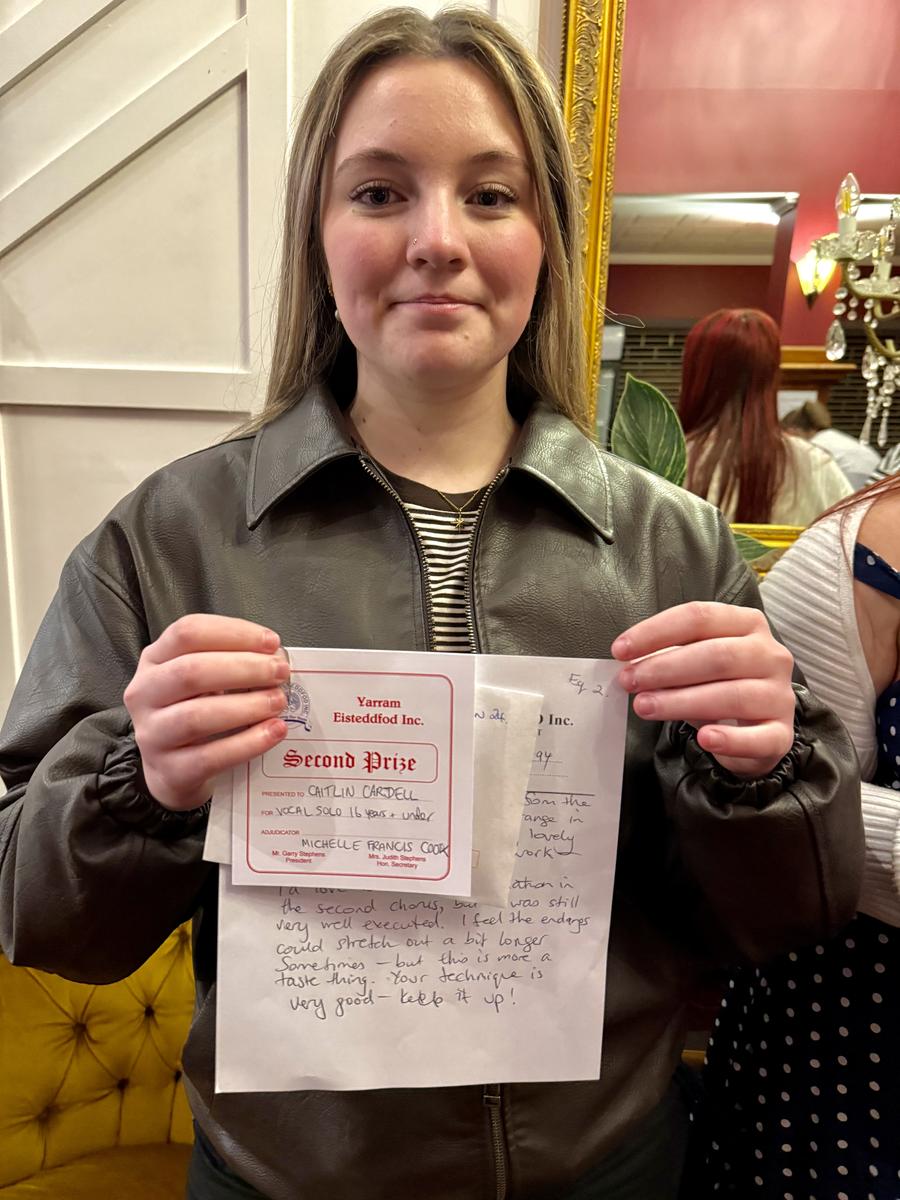 Yarram
Eisteddfod Inc.
Second Prize
PRESENTED TO CAITLIN CARDELL
FOR VOCAL SOLO 16 years + under
ADJUDICATOR MICHELLE FRANCIS COOK
Mr. Garry Stephens
President
Mrs. Judith Stephens
Hon. Secretary
Eq 2.
Inc.
from the
range in
lovely
work
in
the second chorus, but was still
very well executed. I feel the endings
could stretch out a bit longer
Sometimes - but this is more a
taste thing. Your technique is
very good - keep it up!